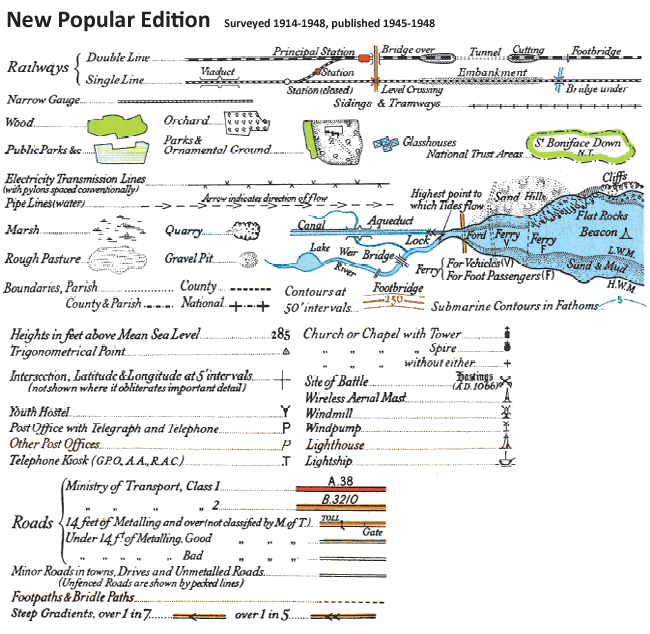 New Popular Edition Surveyed 1914-1948, published 1945-1948
Railways
Double Line
Principal Station
Bridge over
Tunnel
Cutting
Footbridge
Single Line
Viaduct
Station
Station (closed)
Level Crossing
Embankment
Bridge under
Narrow Gauge
Sidings & Tramways
Wood
Orchard
Public Parks &c
Parks &
Ornamental Ground
Glasshouses
National Trust Areas
St Boniface Down
N.T.
Electricity Transmission Lines
(with pylons spaced conventionally)
Pipe Lines (water)
Arrow indicates direction of flow
Highest point to
which Tides flow
Sand Hills
Cliffs
Flat Rocks
Beacon
Marsh
Quarry
Canal
Aqueduct
Lock
Ford
Ferry
Ferry
L.W.M.
Rough Pasture
Gravel Pit
Lake
Weir
Bridge
River
Ferry { For Vehicles (V)
For Foot Passengers (F)
Sand & Mud
H.W.M.
Boundaries, Parish
County
County & Parish
National
Contours at
50' intervals
Footbridge
250
Submarine Contours in Fathoms
5
Heights in feet above Mean Sea Level 285
Trigonometrical Point
Intersection, Latitude & Longitude at 5' intervals
(not shown where it obliterates important detail)
Youth Hostel Y
Post Office with Telegraph and Telephone P
Other Post Offices P
Telephone Kiosk (G.P.O., A.A., R.A.C.) T
Church or Chapel with Tower
" " " " Spire
" " " without either
Site of Battle Hastings
(A.D. 1066)
Wireless Aerial Mast
Windmill
Windpump
Lighthouse
Lightship
Roads
Ministry of Transport, Class 1 A.38
" " " " 2 B.3210
14 feet of Metalling and over (not classified by M. of T.) TOLL
Under 14 ft of Metalling, Good " " Gate
" " " " Bad " "
Minor Roads in towns, Drives and Unmetalled Roads
(Unfenced Roads are shown by pecked lines)
Footpaths & Bridle Paths
Steep Gradients, over 1 in 7 over 1 in 5